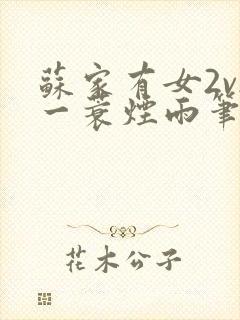 蘇家有女2v
一蓑煙雨筆
花木公子